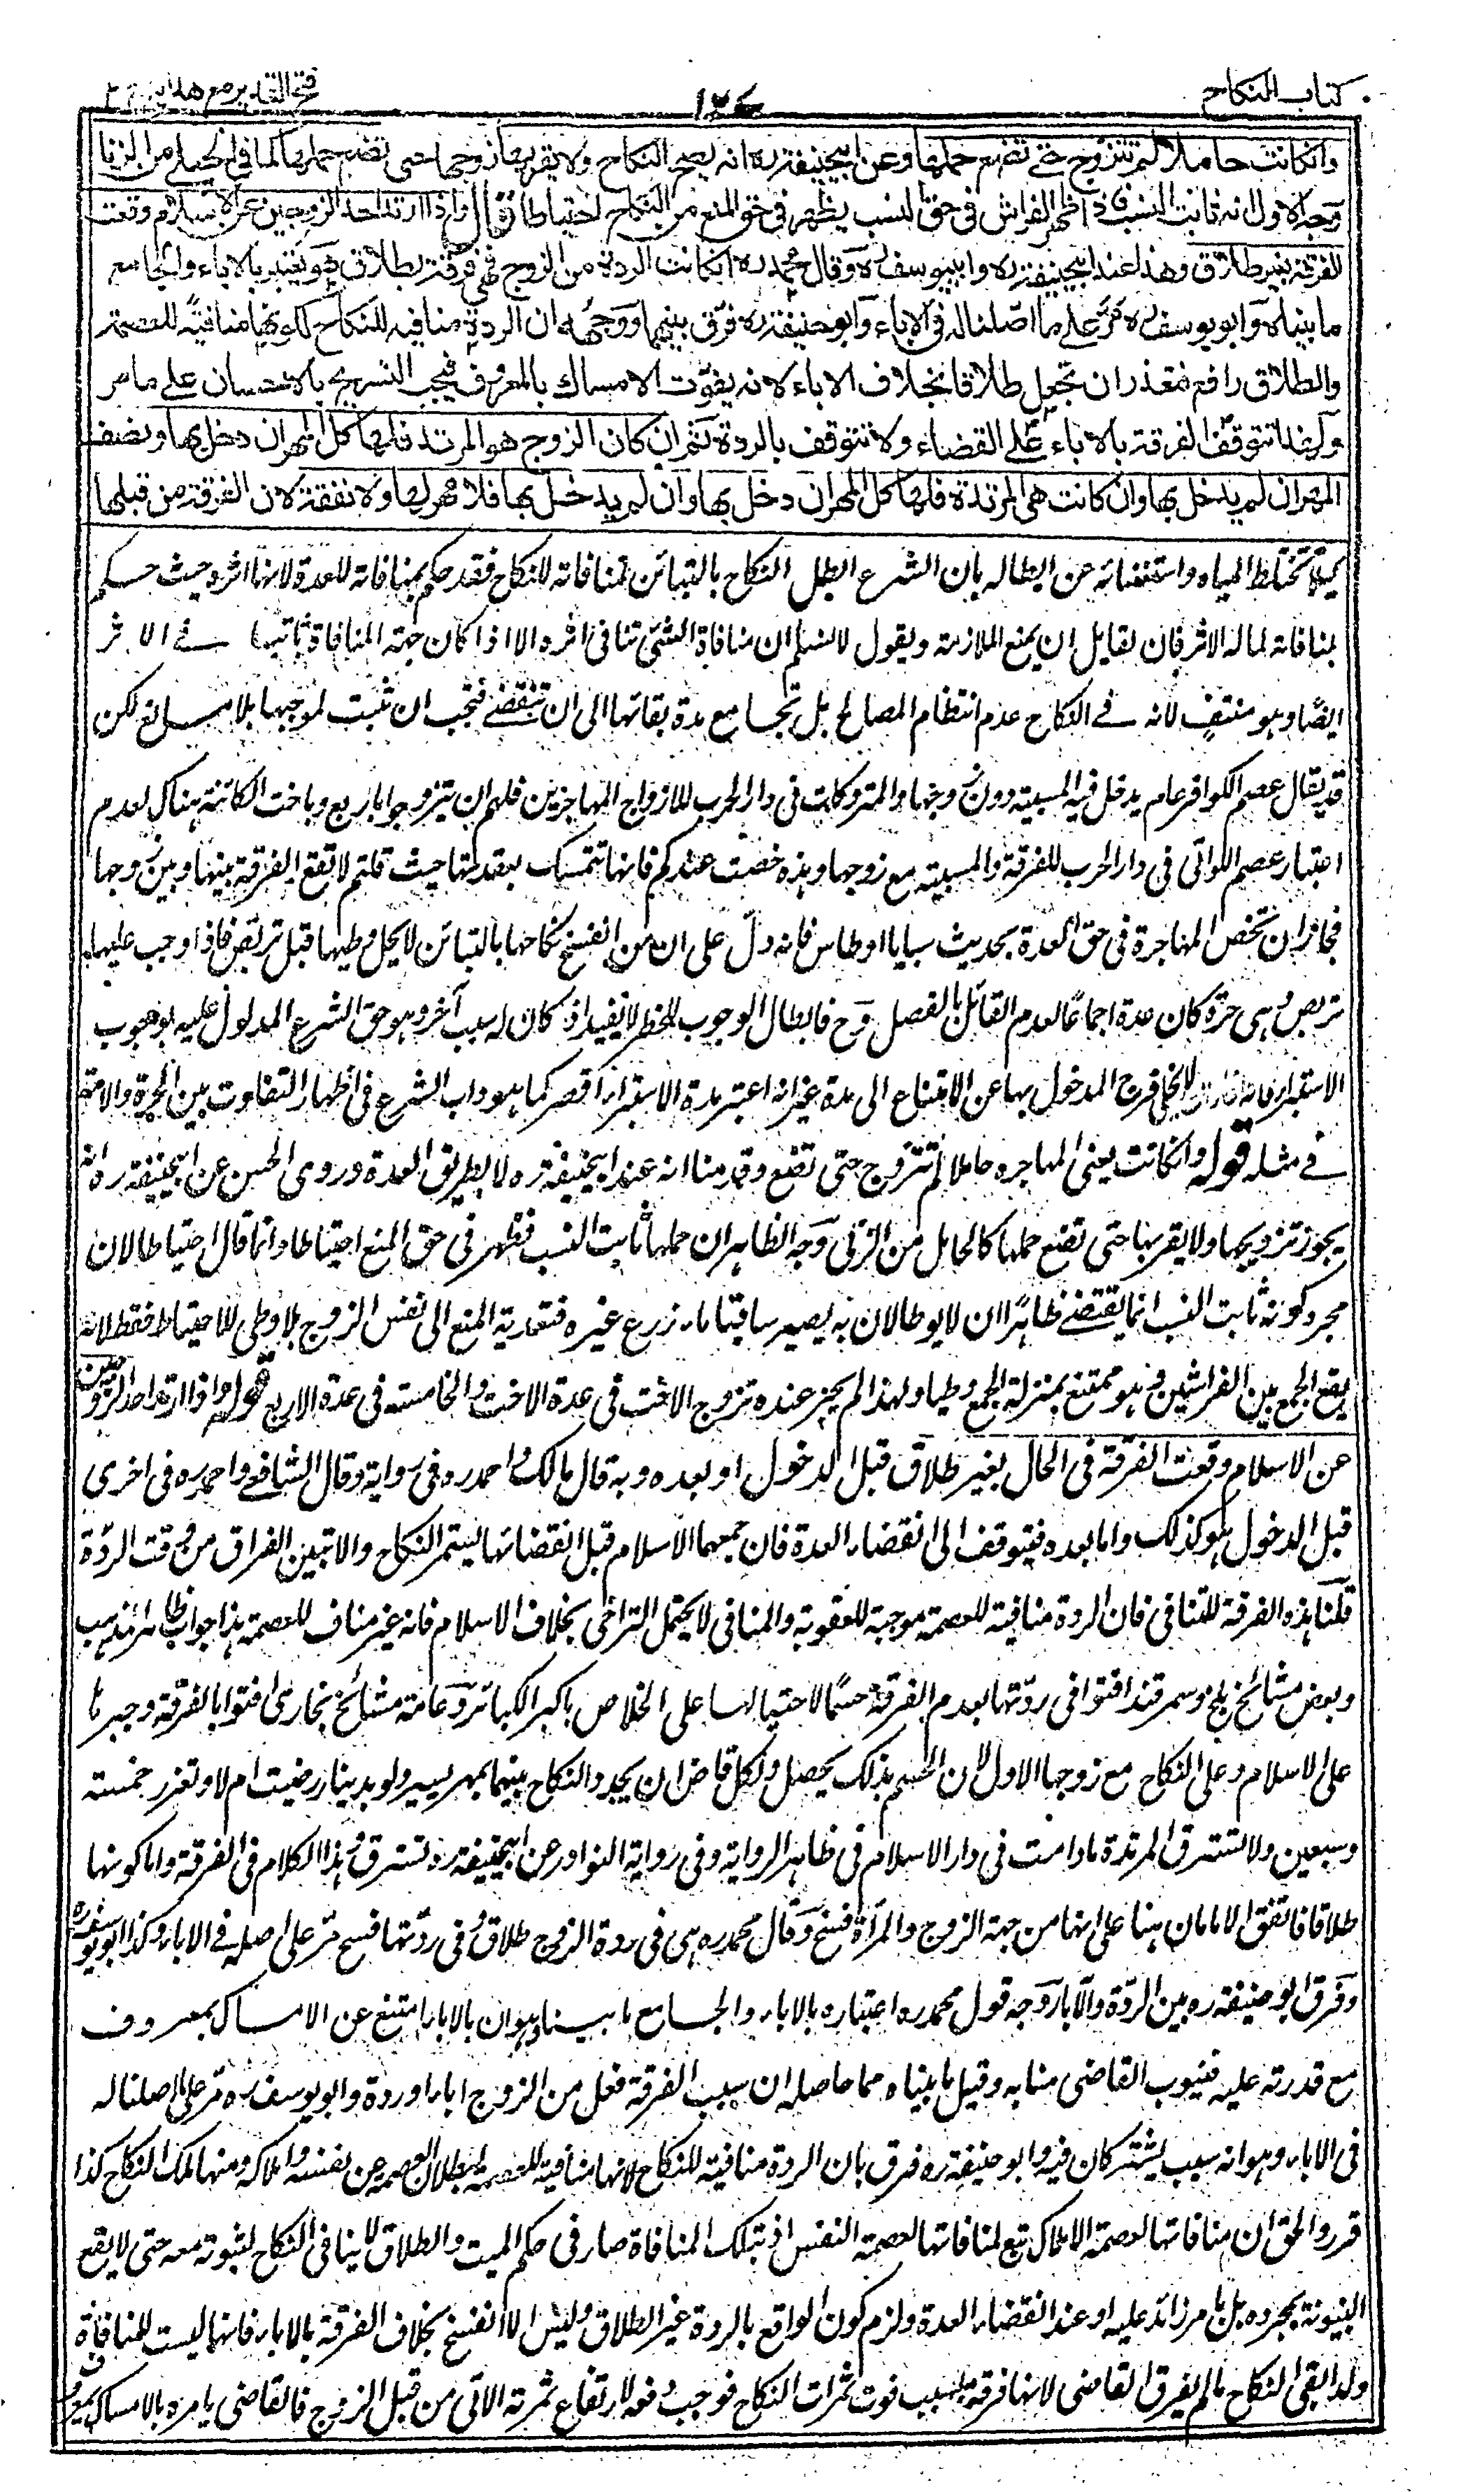 كتاب النكاح
١٢٤
فتح القدير مع هدايه ج ٢
وانكانت حاملا لم تتزوج حتى تضع حملها وعن ابيحنيفة ره انه يصح النكاح ولا يقربها زوجها حتى تضع حملها كما في الحبلى من الزنا
وجه الاول انه ثابت النسب فاذا ظهر الفراش في حق النسب يظهر في حق المنع من النكاح احتياطا قال واذا ارتد احد الزوجين عن الاسلام وقعت
الفرقة بغير طلاق وهذا عند ابيحنيفة ره وابييوسف ره وقال محمد ره انكانت الردة من الزوج فهي فرقة بطلاق هو يعتبر بالاباء والجامع
ما بيناه وابو يوسف ره مر على ما اصلنا له في الاباء وابو حنيفة ره فرق بينهما ووجهه ان الردة منافية للنكاح لكونها منافية للعصمة
والطلاق رافع فتعذر ان تجعل طلاقا بخلاف الاباء لانه يفوت الامساك بالمعروف فيجب التسريح بالاحسان على ما مر
ولهذا تتوقف الفرقة بالاباء على القضاء ولا تتوقف بالردة ثم ان كان الزوج هو المرتد فلها كل المهر ان دخل بها ونصف
المهر ان لم يدخل بها وان كانت هي المرتدة فلها كل المهر ان دخل بها وان لم يدخل بها فلا مهر لها ولا نفقة لان الفرقة من قبلها
كيلا تختلط المياه واستغنائه عن ابطاله بان الشرع ابطل النكاح بالتبائن لمنافاته للنكاح فقد حكم بمنافاته للعدة لانها اثره حيث حكم
بمنافاته لماله الاثر فان لقايل ان يمنع الملازمة ويقول لا نسلم ان منافاة الشئ تنافي اثره الا اذا كان جهة المنافاة ثابتها في الاثر
ايضا وهو منتف لانه في النكاح عدم انتظام المصالح بل تجامع مدة بقائها الى ان تنقضي فتجب ان تثبت لموجبها بلا مانع لكن
قد يقال عصم الكوافر عام يدخل فيه المسبية دون زوجها والمتروكات في دار الحرب للازواج المهاجرين فلهم ان يتزوجوا باربع وباخت الكائنة هناك لعدم
اعتبار عصم اللواتي في دار الحرب للفرقة والمسبية مع زوجها وهذه خصت عندكم فانها تتمسك بعقدتها حيث قلتم لا تقع الفرقة بينها وبين زوجها
فجاز ان تخص المهاجرة في حق العدة بحديث سبايا اوطاس فانه دل على ان من انفسخ نكاحها بالتبائن لا يحل وطيها قبل تربص فاذا وجب عليها
تربص وهي حرة كان عدة اجماعا لعدم القائل بالفصل وح فابطال الوجوب للخطر لا يفيد اذ كان له سبب آخر وهو حق الشرع المدلول عليه بوجوب
الاستبراء فانه لا يخلى فرج المدخول بها عن الامتناع الى مدة غير انه اعتبر مدة الاستبراء اقصر كما هو داب الشرع في اظهار التفاوت بين الحرة والامة
في مثله قوله وانكانت يعني المهاجره حاملا لم تتزوج حتى تضع وقدمنا انه عند ابيحنيفة ره لا بطريق العدة وروى الحسن عن ابيحنيفة ره انه
يجوز تزويجها ولا يقربها حتى تضع حملها كالحامل من الزنى وجه الظاهر ان حملها ثابت النسب فظهر في حق المنع احتياطا وانما قال احتياطا لان
مجرد كونه ثابت النسب انما يقتضي ظاهرا ان لا يوطا لان به يصير ساقيا ماءه زرع غيره فتعدية المنع الى نفس الزوج بلا وطي للاحتياط فقط لانه
يقع الجمع بين الفراشين وهو ممتنع بمنزلة الجمع وطيا ولهذا لم يجز عنده تزوج الاخت في عدة الاخت والخامسة في عدة الاربع قوله واذا ارتد احد الزوجين
عن الاسلام وقعت الفرقة في الحال بغير طلاق قبل الدخول او بعده وبه قال مالك واحمد ره في رواية وقال الشافعي واحمد ره في اخرى
قبل الدخول هو كذلك واما بعده فيتوقف الى انقضاء العدة فان جمعهما الاسلام قبل انقضائها يستمر النكاح والا تبين الفراق من وقت الردة
قلنا هذه الفرقة للتنافي فان الردة منافية للعصمة موجبة للعقوبة والمنافي لا يحتمل التراخي بخلاف الاسلام فانه غير مناف للعصمة هذا جواب ظاهر المذهب
وبعض مشائخ بلخ وسمرقند افتوا في ردتها بعدم الفرقة حسما لاحتيالها على الخلاص باكبر الكبائر وعامة مشائخ بخارى افتوا بالفرقة وجبرها
على الاسلام وعلى النكاح مع زوجها الاول لان الحسم بذلك يحصل ولكل قاض ان يجدد النكاح بينهما بمهر يسير ولو بدينار رضيت ام لا وتعزر خمسة
وسبعين ولا تسترق المرتدة ما دامت في دار الاسلام في ظاهر الرواية وفي رواية النوادر عن ابيحنيفة ره تسترق وهذا الكلام في الفرقة واما كونها
طلاقا فاتفق الامامان هنا على انها من جهة الزوج والمرأة فسخ وقال محمد ره هي في ردة الزوج طلاق وفي ردتها فسح مر على اصله في الاباء وكذا ابو يوسف ره
وفرق ابو حنيفة ره بين الردة والاباء وجه قول محمد ره اعتباره بالاباء والجامع ما بيناه وهو ان بالاباء امتنع عن الامساك بمعروف
مع قدرته عليه فينوب القاضي منابه وقيل ما بيناه مما حاصله ان سبب الفرقة فعل من الزوج اباء او ردة وابو يوسف ره مر على ما اصلنا له
في الاباء وهو انه سبب يشتركان فيه وابو حنيفة ره فرق بان الردة منافية للنكاح لانها منافية للعصمة لبطلان العصمة عن نفسه واملاكه ومنها ملك النكاح كذا
قرر والحق ان منافاتها لعصمة الاملاك تبع لمنافاتها لعصمة النفس اذ بتلك المنافاة صار في حكم الميت والطلاق لا ينافي النكاح لثبوته معه حتى لا يقع
البينونة بمجرده بل بامر زائد عليه او عند انقضاء العدة ولزم كون الواقع بالردة غير الطلاق وليس الا الفسخ بخلاف الفرقة بالاباء فانها ليست للمنافاة
ولذا بقي النكاح ما لم يفرق القاضي لانها فرقة بسبب فوت ثمرات النكاح فوجب رفعه لارتفاع ثمرته الآتي من قبل الزوج فالقاضي يامره بالامساك بمعروف